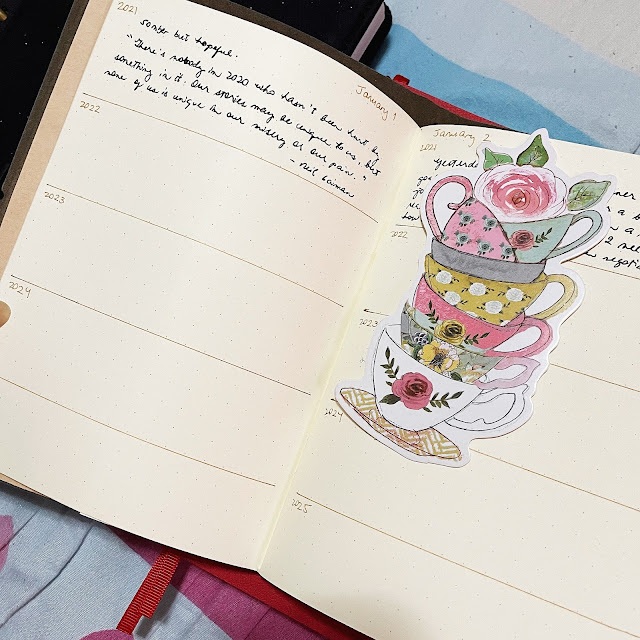 January 1
2021
somber but hopeful.
"There's nobody in 2020 who hasn't been hurt by
something in it. Our stories may be unique to us, but
none of us is unique in our misery or our pain."
- Neil Gaiman
2022
2023
2024
January 2
2021
2022
2023
2024
2025